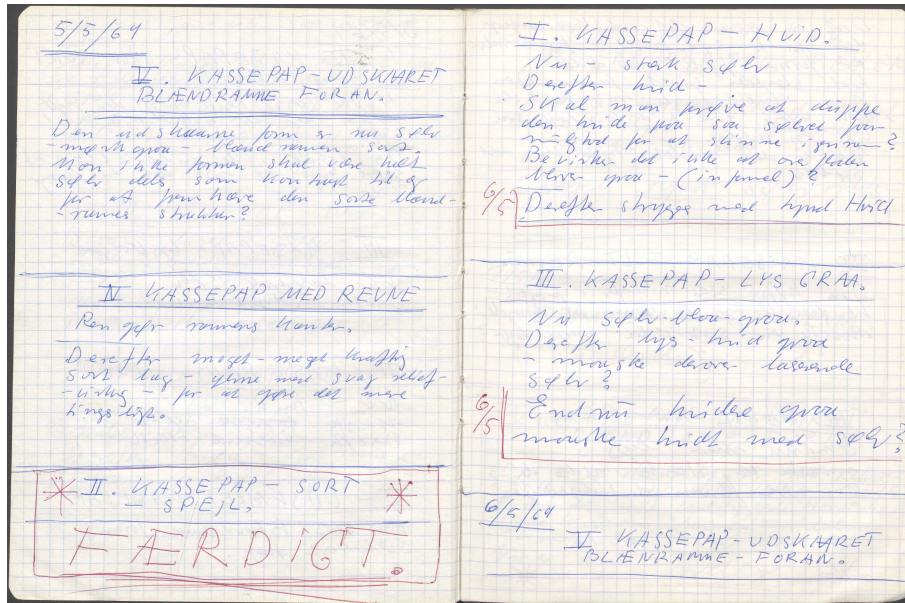 5/5/69
V. KASSEPAP-UDSKAARET
BLÆNDRAMME FORAN.
Den udskaarne form er nu sølv
-mørk graa - blændramen sort.
Mon ikke formen skal være helt
sølv dels som kontrast til og
for at fremhæve den sorte blænd-
-rames struktur?
IV KASSEPAP MED REVNE
Rengør ramens kanter.
Derefter meget-meget kraftig
sort lag - gerne med svag relief-
-virkng - for at gøre det mere
tingsligt.
II. KASSEPAP - SORT
- SPEJL.
FÆRDIGT.
I. KASSEPAP - HVID.
Nu - stærk sølv
Derefter hvid -
Skal man prøve at duppe
den hvide paa saa sølvet faar
mulighed for at skinne igennem?
Bevirker det ikke at overfladen
bliver graa - (infamel)?
6/5 Derefter stryges med tynd Hvid
III. KASSEPAP - LYS GRAA.
Nu sølv-blaa-graa.
Derefter lys-hvid graa
- maaske derover laserende
sølv?
6/5 Endnu hvidere graa
maaske hvidt med sølv?
6/5/69
V KASSEPAP-UDSKAARET
BLÆNRAMME-FORAN.